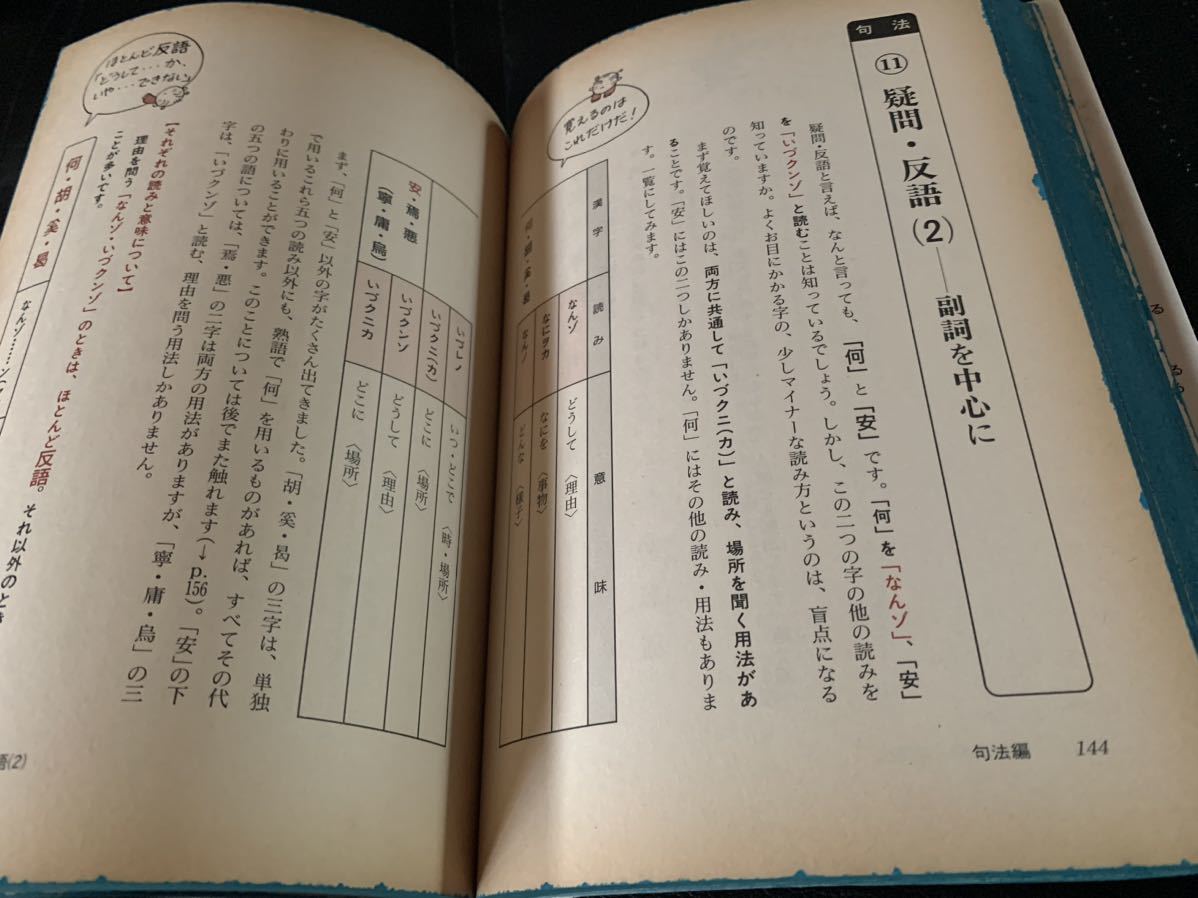 句法
⑪ 疑問・反語(2)――副詞を中心に
疑問・反語と言えば、なんと言っても、「何」と「安」です。「何」を「なんゾ」、「安」
を「いづクンゾ」と読むことは知っているでしょう。しかし、この二つの字の他の読みを
知っていますか。よくお目にかかる字の、少しマイナーな読み方というのは、盲点になる
のです。
まず覚えてほしいのは、両方に共通して「いづクニ(カ)」と読み、場所を聞く用法があ
ることです。「安」にはこの二つしかありません。「何」にはその他の読み・用法もありま
す。一覧にしてみます。
覚えるのは
これだけだ!
漢字 読み 意味
何・胡・奚・曷
なんゾ どうして〈理由〉
なにヲカ なにを〈事物〉
なんノ どんな〈様子〉
いづレノ いつ・どこで〈時・場所〉
いづクニ(カ) どこに〈場所〉
安・焉・悪
(寧・庸・烏)
いづクンゾ どうして〈理由〉
いづクニカ どこに〈場所〉
句法編 144
まず、「何」と「安」以外の字がたくさん出てきました。「胡・奚・曷」の三字は、単独
で用いるこれら五つの読み以外にも、熟語で「何」を用いるものがあれば、すべてその代
わりに用いることができます。このことについては後でまた触れます(→p.156)。「安」の下
の五つの語については、「焉・悪」の二字は両方の用法がありますが、「寧・庸・烏」の三
字は、「いづクンゾ」と読む、理由を問う用法しかありません。
【それぞれの読みと意味について】
理由を問う「なんゾ・いづクンゾ」のときは、ほとんど反語。それ以外のとき
ことが多いです。
ほとんど反語
「どうして・・・か、
いや・・・できない」
何・胡・奚・曷
なんゾ
語(2)
る